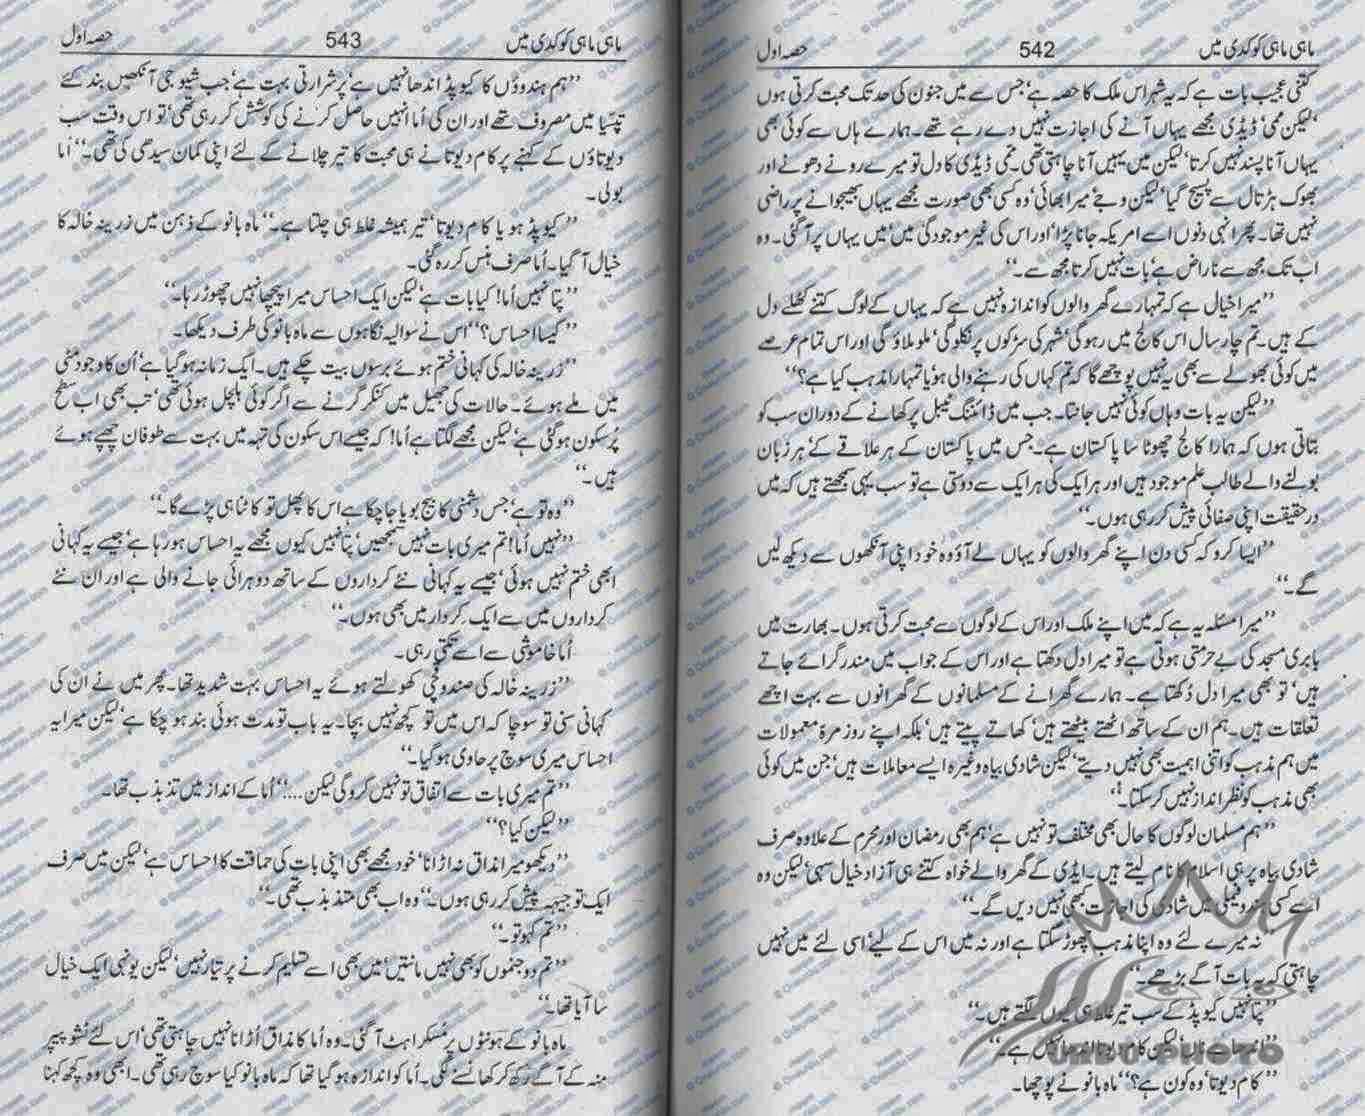 ماہی ماہی کوکدی میں 542 حصہ اول
کتنی عجیب بات ہے کہ یہ شہر اس ملک کا حصہ ہے‘ جس سے میں جنون کی حد تک محبت کرتی ہوں
‘لیکن ممی‘ ڈیڈی مجھے یہاں آنے کی اجازت نہیں دے رہے تھے۔ ہمارے ہاں سے کوئی بھی
یہاں آنا پسند نہیں کرتا‘ لیکن میں یہیں آنا چاہتی تھی۔ ممی ڈیڈی کا دل تو میرے رونے دھونے اور
بھوک ہڑتال سے پسیج گیا‘ لیکن وجے‘ میرا بھائی‘ وہ کسی بھی صورت مجھے یہاں بھیجوانے پر راضی
نہیں تھا۔ پھر انہی دنوں اسے امریکہ جانا پڑا‘ اور اس کی غیر موجودگی میں‘ میں یہاں پر آ گئی۔ وہ
اب تک مجھ سے ناراض ہے‘ بات نہیں کرتا مجھ سے۔‘‘
’’میرا خیال ہے کہ تمہارے گھر والوں کو اندازہ نہیں ہے کہ یہاں کے لوگ کتنے کھلے دل
کے ہیں۔ تم چار سال اس کالج میں رہو گی‘ شہر کی سڑکوں پر نکلو گی‘ ملو ملاؤ گی اور اس تمام عرصے
میں کوئی بھولے سے بھی یہ نہیں پوچھے گا کہ تم کہاں کی رہنے والی ہو‘ یا تمہارا مذہب کیا ہے؟‘‘
’’لیکن یہ بات وہاں کوئی نہیں جانتا۔ جب میں ڈائننگ ٹیبل پر کھانے کے دوران سب کو
بتاتی ہوں کہ ہمارا کالج چھوٹا سا پاکستان ہے۔ جس میں پاکستان کے ہر علاقے کے‘ ہر زبان
بولنے والے طالب علم موجود ہیں اور ہر ایک کی ہر ایک سے دوستی ہے تو سب یہی سمجھتے ہیں کہ میں
درحقیقت اپنی صفائی پیش کر رہی ہوں۔‘‘
’’ایسا کرو کہ کسی دن اپنے گھر والوں کو یہاں لے آؤ وہ خود اپنی آنکھوں سے دیکھ لیں
گے۔‘‘
’’میرا مسئلہ یہ ہے کہ میں اپنے ملک اور اس کے لوگوں سے محبت کرتی ہوں۔ بھارت میں
بابری مسجد کی بے حرمتی ہوتی ہے تو میرا دل دکھتا ہے اور اس کے جواب میں مندر گرائے جاتے
ہیں‘ تو بھی میرا دل دُکھتا ہے۔ ہمارے گھرانے کے مسلمانوں کے گھرانوں سے بہت اچھے
تعلقات ہیں۔ ہم ان کے ساتھ اٹھتے بیٹھتے ہیں‘ کھاتے پیتے ہیں‘ بلکہ اپنے روز مرہ معمولات
میں ہم مذہب کو اتنی اہمیت بھی نہیں دیتے‘ لیکن شادی بیاہ وغیرہ ایسے معاملات ہیں‘ جن میں کوئی
بھی مذہب کو نظر انداز نہیں کر سکتا۔‘‘
’’ہم مسلمان لوگوں کا حال بھی مختلف تو نہیں ہے‘ ہم بھی رمضان اور محرم کے علاوہ صرف
شادی بیاہ پر ہی اسلام کا نام لیتے ہیں۔ ایڈی کے گھر والے خواہ کتنے ہی آزاد خیال سہی‘ لیکن وہ
اسے کسی ہندو فیملی میں شادی کی اجازت کبھی نہیں دیں گے۔‘‘
’’نہ میرے لئے وہ اپنا مذہب چھوڑ سکتا ہے اور نہ میں اس کے لیے‘ اسی لئے میں نہیں
چاہتی کہ یہ بات آگے بڑھے۔‘‘
’’پتا نہیں کیوپڈ کے سب تیر غلط ہی کیوں لگتے ہیں۔‘‘
’’اندھا ہے نا‘ لیکن کام دیوتا اندھا نہیں ہے۔‘‘
’’کام دیوتا‘ وہ کون ہے؟‘‘ ماہ بانو نے پوچھا۔
URDU PHOTO
ماہی ماہی کوکدی میں 543 حصہ اول
’’ہم ہندوؤں کا کیوپڈ اندھا نہیں ہے‘ پر شرارتی بہت ہے‘ جب شیو جی آنکھیں بند کئے
تپسیا میں مصروف تھے اور ان کی اُما انہیں حاصل کرنے کی کوشش کر رہی تھی‘ تو اس وقت سب
دیوتاؤں کے کہنے پر کام دیوتا نے ہی محبت کا تیر چلانے کے لئے اپنی کمان سیدھی کی تھی۔‘‘ اُما
بولی۔
’’کیوپڈ ہو یا کام دیوتا‘ تیر ہمیشہ غلط ہی چلتا ہے۔‘‘ ماہ بانو کے ذہن میں زرینہ خالہ کا
خیال آ گیا۔ اُما صرف ہنس کر رہ گئی۔
’’پتا نہیں اُما! کیا بات ہے‘ لیکن ایک احساس میرا پیچھا نہیں چھوڑ رہا۔‘‘
’’کیسا احساس؟‘‘ اس نے سوالیہ نگاہوں سے ماہ بانو کی طرف دیکھا۔
’’زرینہ خالہ کی کہانی ختم ہوئے برسوں بیت چکے ہیں۔ ایک زمانہ ہو گیا ہے‘ اُن کا وجود مٹی
میں ملے ہوئے۔ حالات کی جھیل میں کنکر گرنے سے اگر کوئی ہلچل ہوئی تھی‘ تب بھی اب سطح
پُر سکون ہو گئی ہے‘ لیکن مجھے لگتا ہے اُما! کہ جیسے اس سکون کی تہہ میں بہت سے طوفان چھپے ہوئے
ہیں۔‘‘
’’وہ تو ہے‘ جس دشمنی کا بیج بویا جا چکا ہے اس کا پھل تو کاٹنا ہی پڑے گا۔‘‘
’’نہیں اُما! تم میری بات نہیں سمجھیں‘ پتا نہیں کیوں مجھے یہ احساس ہو رہا ہے‘ جیسے یہ کہانی
ابھی ختم نہیں ہوئی‘ جیسے یہ کہانی نئے کرداروں کے ساتھ دوہرائی جانے والی ہے اور ان نئے
کرداروں میں سے ایک کردار میں بھی ہوں۔‘‘
اُما خاموشی سے اسے تکتی رہی۔
’’زرینہ خالہ کی صندوقچی کھولتے ہوئے یہ احساس بہت شدید تھا۔ پھر میں نے ان کی
کہانی سنی تو سوچا کہ اس میں تو کچھ نہیں بچا۔ یہ باب تو مدت ہوئی بند ہو چکا ہے‘ لیکن میرا یہ
احساس میری سوچ پر حاوی ہو گیا۔‘‘
’’تم میری بات سے اتفاق تو نہیں کرو گی لیکن....‘‘ اُما کے انداز میں تذبذب تھا۔
’’لیکن کیا؟‘‘
’’دیکھو میرا مذاق نہ اڑانا‘ خود مجھے بھی اپنی بات کی حماقت کا احساس ہے‘ لیکن میں صرف
ایک توجیہہ پیش کر رہی ہوں۔‘‘ وہ اب بھی متذبذب تھی۔
’’تم کہو تو۔‘‘
’’تم دو جنموں کو بھی نہیں مانتیں‘ میں بھی اسے تسلیم کرنے پر تیار نہیں‘ لیکن یونہی ایک خیال
سا آیا تھا۔‘‘
ماہ بانو کے ہونٹوں پر مُسکراہٹ آ گئی۔ وہ اُما کا مذاق اُڑانا نہیں چاہتی تھی‘ اس لئے ٹشو پیپر
منہ کے آگے رکھ کر کھانسنے لگی۔ اُما کو اندازہ ہو گیا تھا کہ ماہ بانو کیا سوچ رہی تھی۔ ابھی وہ کچھ کہنا